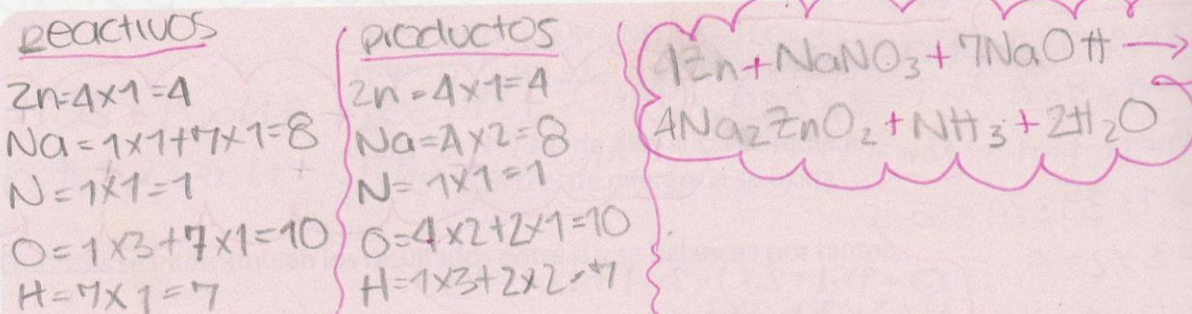 Reactivos
Zn=4x1=4
Na=1x1+7x1=8
N=1x1=1
O=1x3+7x1=10
H=7x1=7
productos
Zn=4x1=4
Na=4x2=8
N=1x1=1
O=4x2+2x1=10
H=1x3+2x2=7
4Zn+NaNO₃+7NaOH →
4Na₂ZnO₂+NH₃+2H₂O